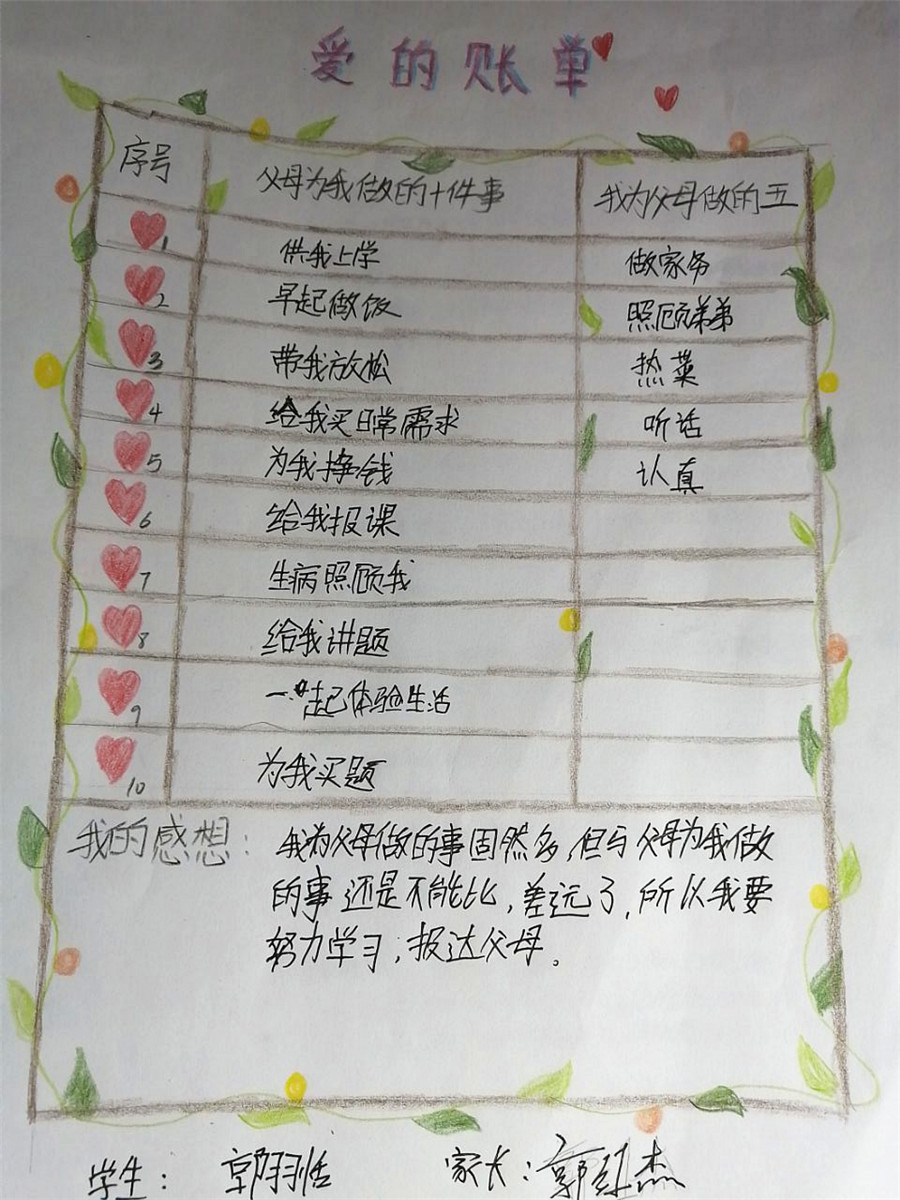 爱的账单
序号 父母为我做的十件事 我为父母做的五
1 供我上学 做家务
2 早起做饭 照顾弟弟
3 带我放松 热菜
4 给我买日常需求 听话
5 为我挣钱 认真
6 给我报课
7 生病照顾我
8 给我讲题
9 一起体验生活
10 为我买题
我的感想: 我为父母做的事固然多,但与父母为我做
的事还是不能比,差远了,所以我要
努力学习,报达父母。
学生: 郭羽恬 家长:郭红杰